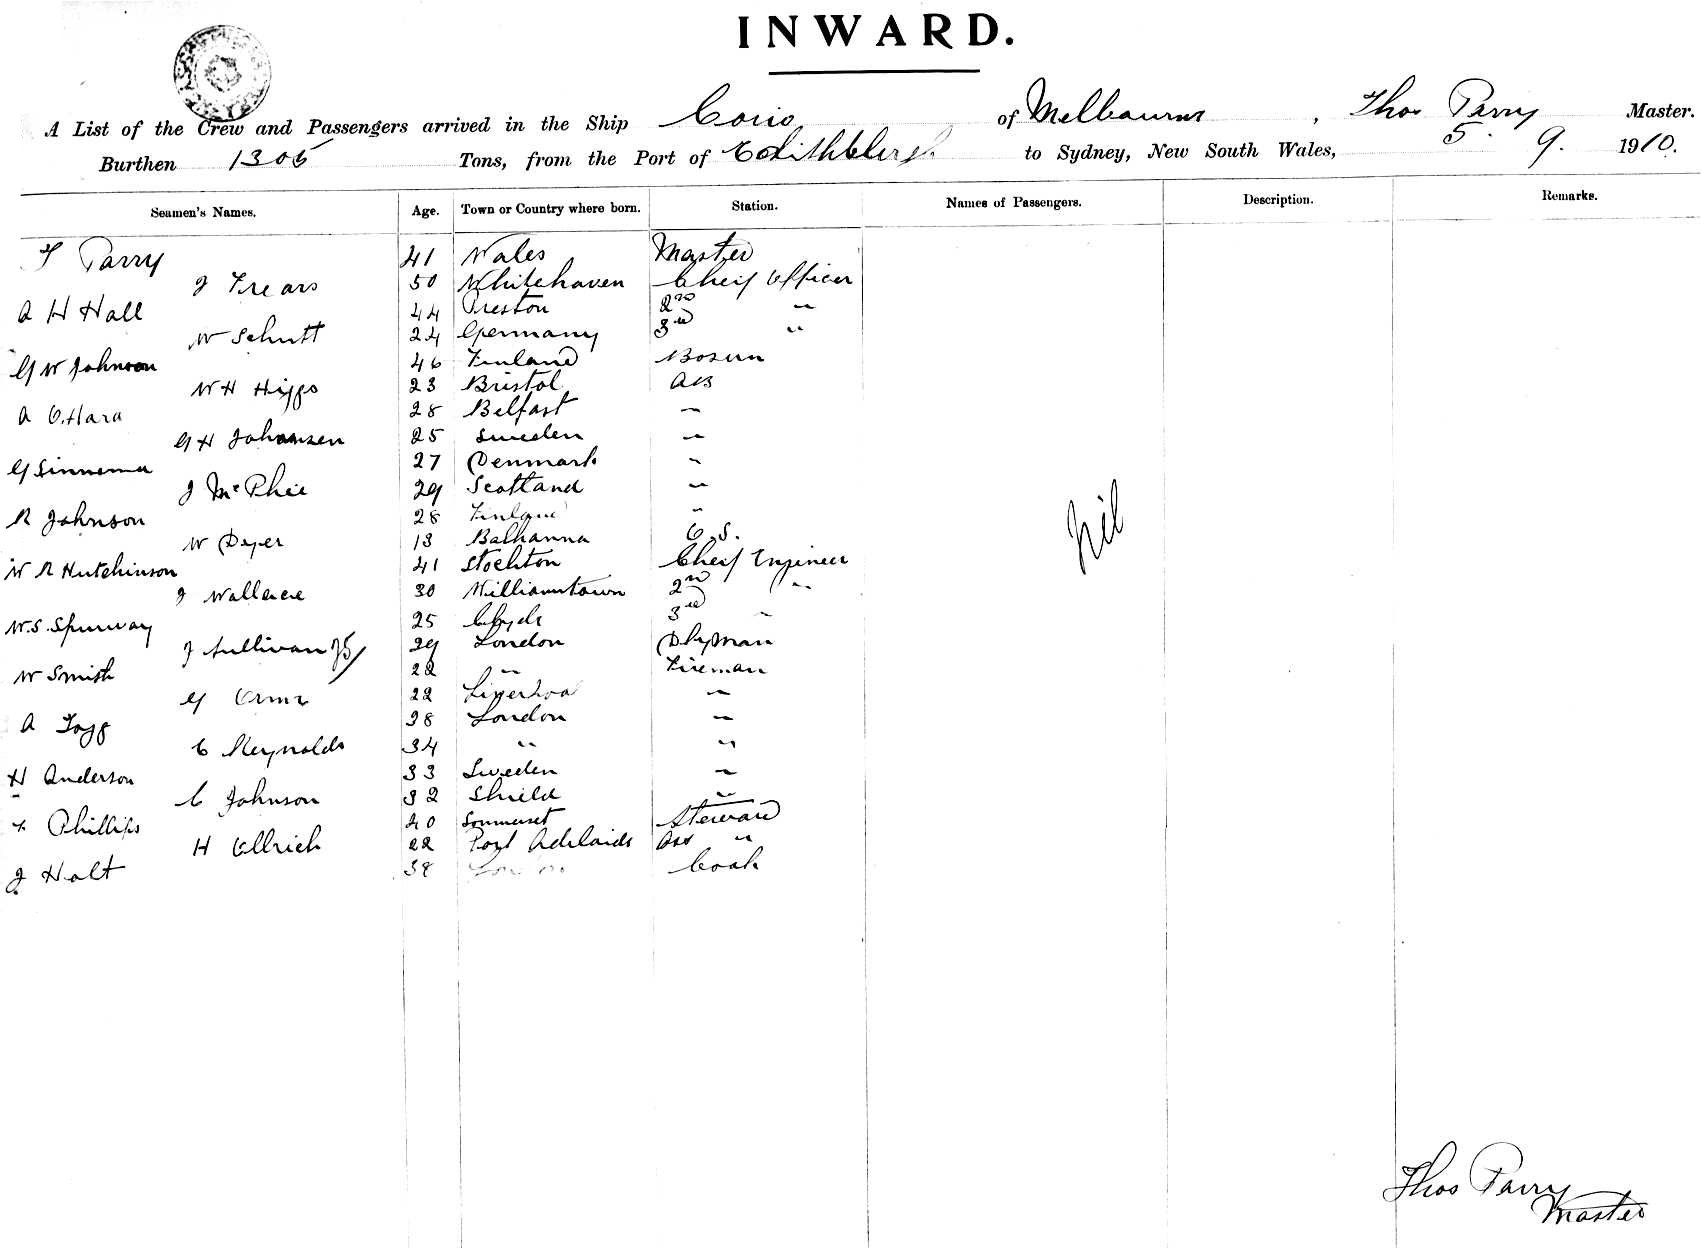 INWARD.
A List of the Crew and Passengers arrived in the Ship Corio of Melbourne, Thos Parry Master.
Burthen 1305 Tons, from the Port of Edithburgh to Sydney, New South Wales, 5. 9. 1910.
Seamen's Names. Age. Town or Country where born. Station. Names of Passengers. Description. Remarks.
T Parry 41 Wales Master
J Frears 50 Whitehaven Cheif Officer
A H Hall 44 Preston 2nd "
W Schutt 24 Germany 3rd "
G W Johnson 46 Finland Bosun
W H Higgs 23 Bristol AB
A O.Hara 28 Belfast "
G H Johansen 25 Sweden "
G Sinnema 27 Denmark "
J McPhee 29 Scotland "
R Johnson 28 Finland "
W Dyer 18 Balhanna O.S.
W R Hutchinson 41 Stockton Cheif Engineer
J Wallace 30 Williamtown 2nd "
W.S. Spurway 25 Clyde 3rd "
J Sullivan 29 London Dkyman
W Smith 22 " Fireman
G Orme 22 Liverpool "
A Fogg 28 London "
C Reynolds 34 " "
H Anderson 33 Sweden "
C Johnson 32 Shield "
Phillips 40 Sommerset Steward
H Ullrich 22 Port Adelaide Ass "
J Holt 38 London Cook
Nil
Thos Parry
Master